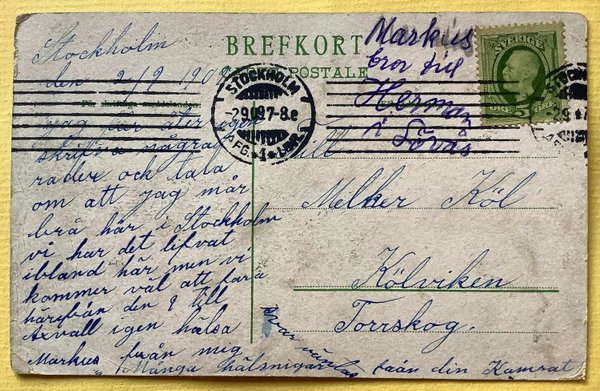 Stockholm
den 2/9 1909
BREFKORT
POSTALE
Markus
bror till
Herman
i
SVERIGE
5 5
STOCKHOLM
2.9.09.7-8e
AFG. 1
jag får åter igen
skrifva några
rader och tala
om att jag mår
brå här i Stockholm
vi har det lifvat
ibland här men vi
kommer väl att fara
härifrån den 8 till
Axvall igen hälsa
Markus från mig
Många hälsnigar
från din Kamrat
Till
Melker Köl
Kölviken
Torrskog.